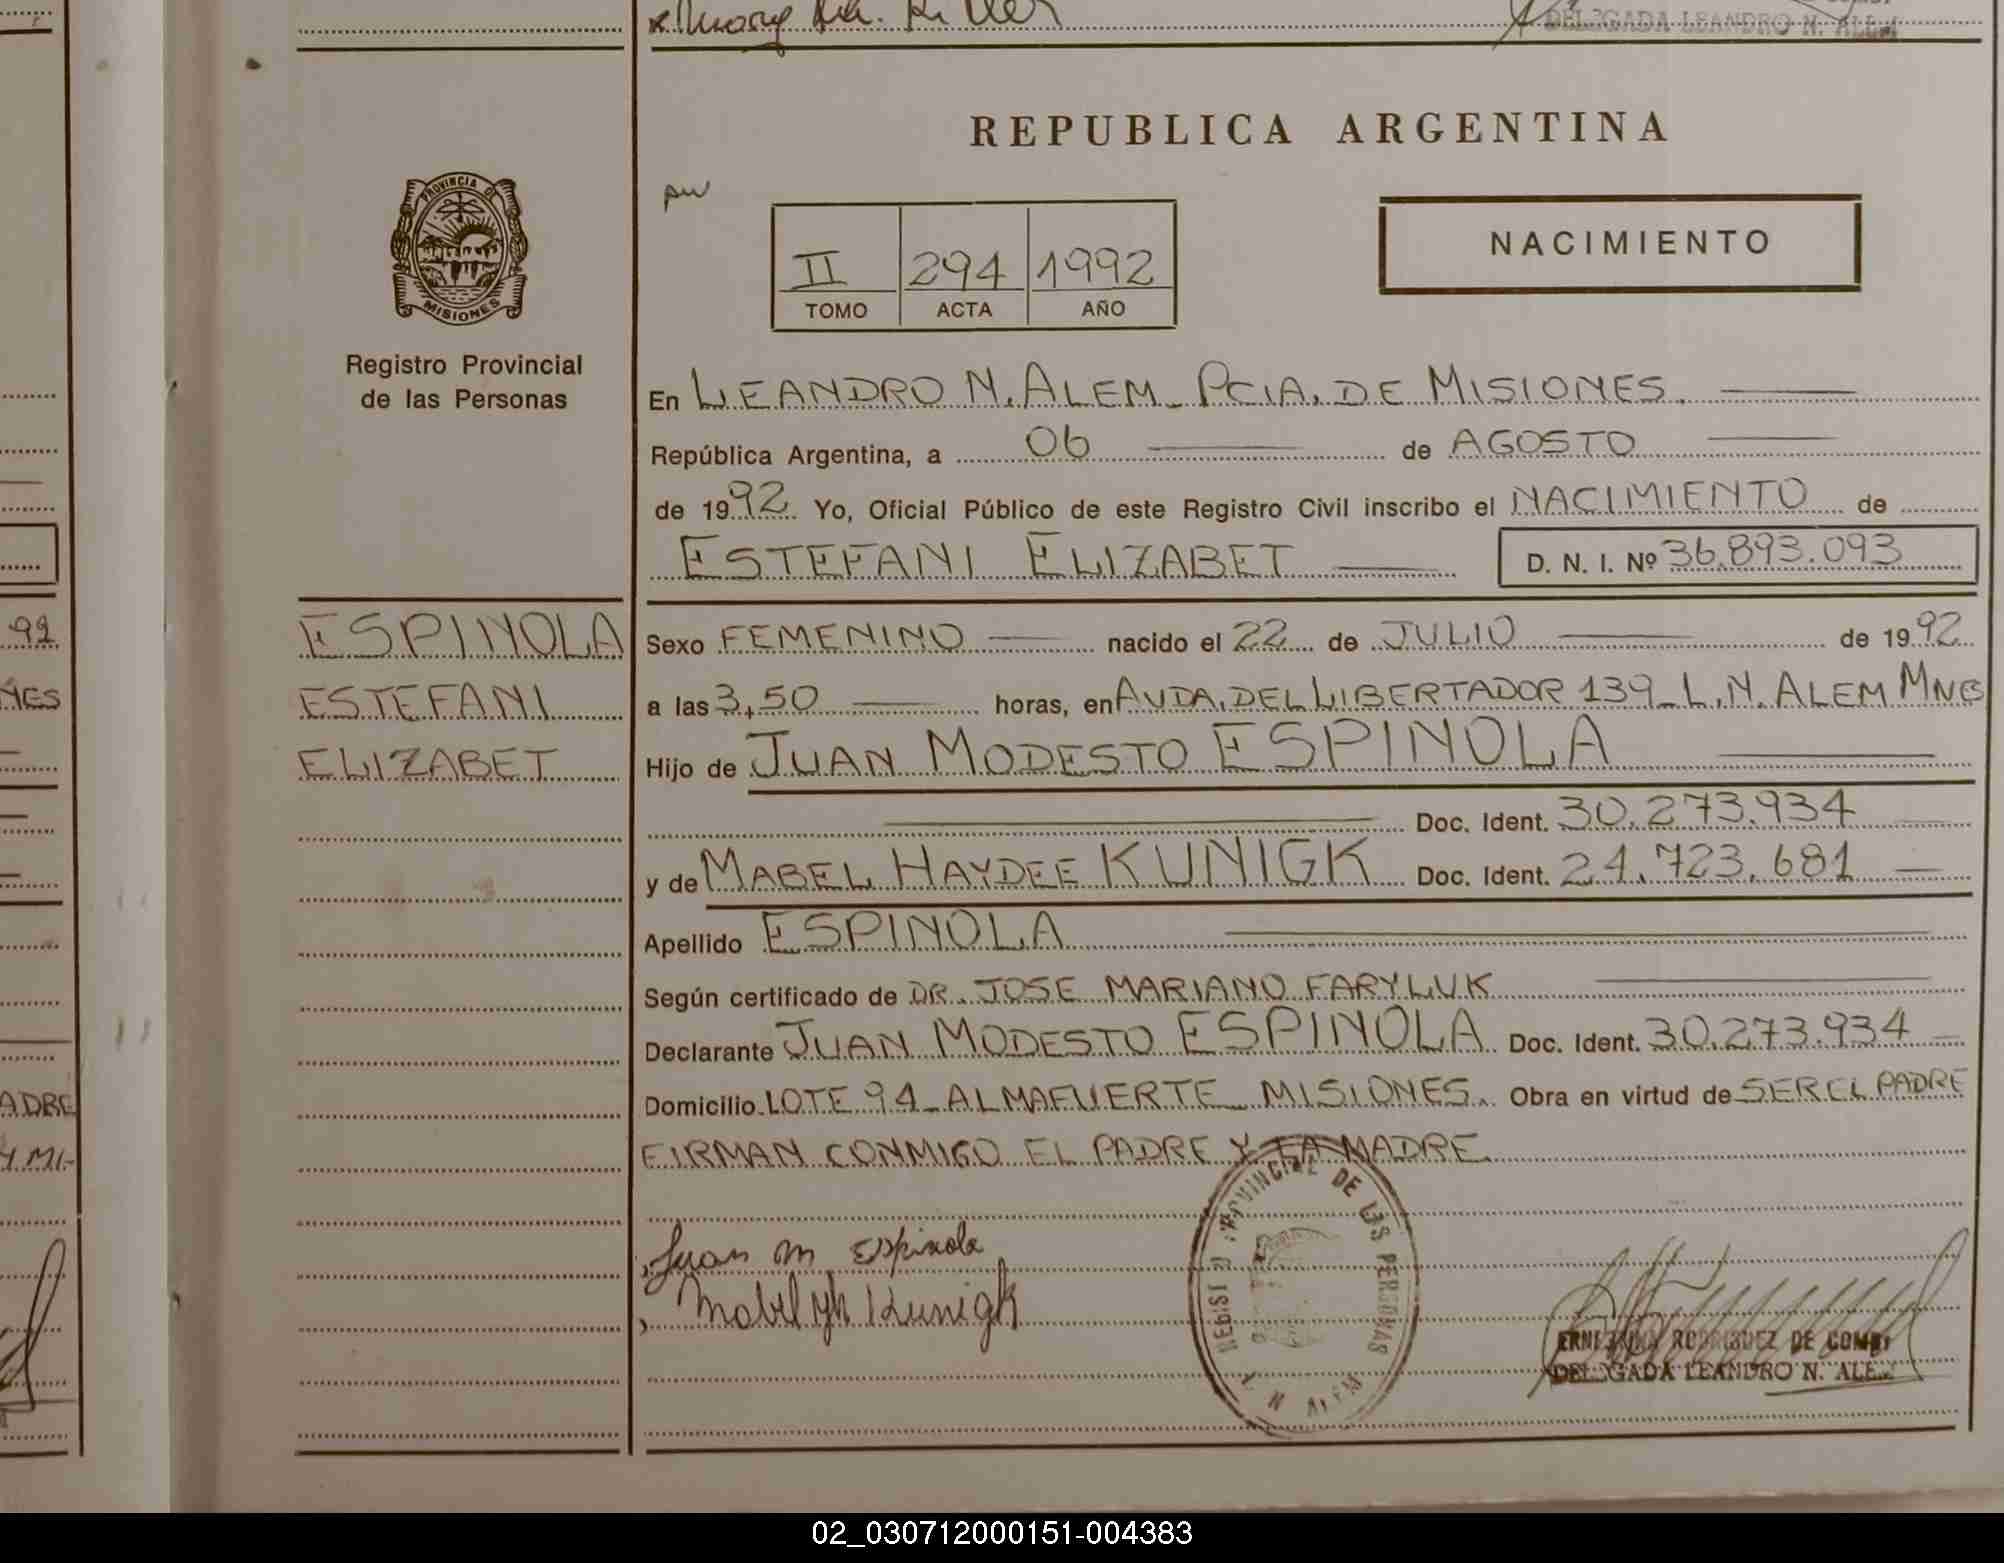 DELEGADA LEANDRO N. ALEM
REPUBLICA ARGENTINA
PROVINCIA DE
MISIONES
II 294 1992
TOMO ACTA AÑO
NACIMIENTO
Registro Provincial
de las Personas
En LEANDRO N. ALEM - PCIA. DE MISIONES.
República Argentina, a 06 de AGOSTO
de 1992 Yo, Oficial Público de este Registro Civil inscribo el NACIMIENTO de
ESTEFANI ELIZABET D. N. I. Nº 36.893.093
ESPINOLA
ESTEFANI
ELIZABET
Sexo FEMENINO nacido el 22 de JULIO de 1992
a las 3,50 horas, en AVDA. DEL LIBERTADOR 139 - L.N. ALEM MNES
Hijo de JUAN MODESTO ESPINOLA
Doc. Ident. 30.273.934
y de MABEL HAYDEE KUNIGK Doc. Ident. 24.723.681
Apellido ESPINOLA
Según certificado de DR. JOSE MARIANO FARYLUK
Declarante JUAN MODESTO ESPINOLA Doc. Ident. 30.273.934
Domicilio LOTE 94 - ALMAFUERTE - MISIONES. Obra en virtud de SER EL PADRE
FIRMAN CONMIGO EL PADRE Y LA MADRE.
Juan M Espinola
Kunigk
PROVINCIAL DE LAS PERSONAS
RODRIGUEZ DE
DELEGADA LEANDRO N. ALEM
92
ADRE
Y MI-
02_030712000151-004383